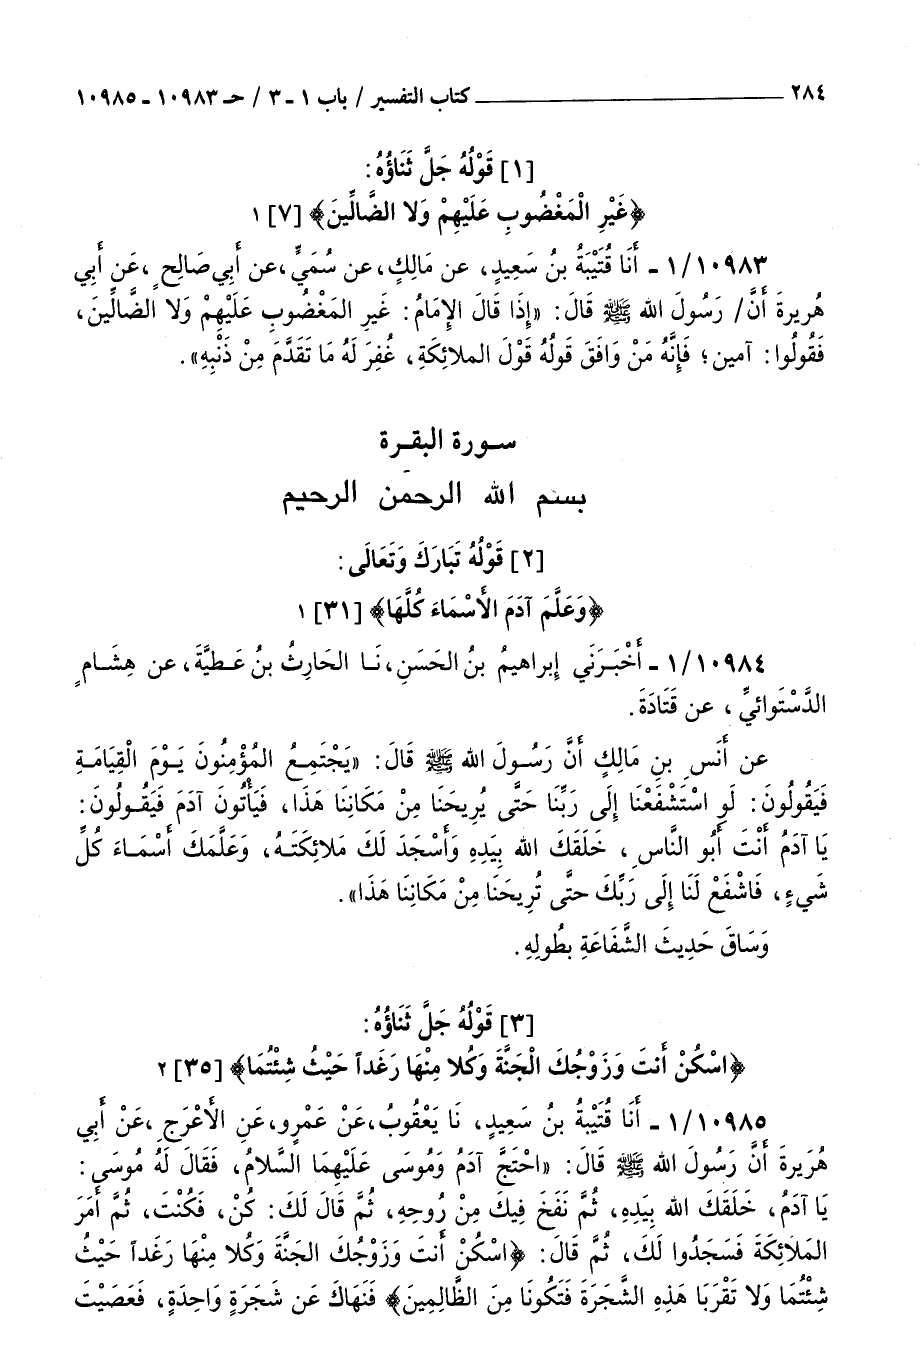 ٢٨٤ ــــــــــــــــ كتاب التفسير / باب ١ ـ ٣ / حـ ١٠٩٨٣ ـ ١٠٩٨٥
[١] قَوْلُهُ جَلَّ ثَنَاؤُهُ:
﴿غَيْرِ الْمَغْضُوبِ عَلَيْهِمْ وَلا الضَّالِّينَ﴾ [٧] ١
١٠٩٨٣/ ١ ـ أَنَا قُتَيْبَةُ بنُ سَعِيدٍ، عن مَالِكٍ،عن سُمَيٍّ،عن أَبي صَالِحٍ ،عَن أَبي
هُريرةَ أَنَّ/ رَسُولَ الله ﷺ قَالَ: «إِذَا قَالَ الإِمَامُ: غَيرِ المَغْضُوبِ عَلَيْهِمْ وَلا الضَّالِّينَ،
فَقُولُوا: آمين؛ فَإِنَّهُ مَنْ وَافَقَ قَوْلُهُ قَوْلَ الملائِكَةِ، غُفِرَ لَهُ مَا تَقَدَّمَ مِنْ ذَنْبِهِ».
سـورة البقـرة
بسم الله الرحمن الرحيم
[٢] قَوْلُهُ تَبَارَكَ وَتَعَالَى:
﴿وَعَلَّمَ آدَمَ الأَسْمَاءَ كُلَّهَا﴾ [٣١] ١
١٠٩٨٤/ ١ ـ أَخْبَـرَنَي إبراهيمُ بنُ الحَسَنِ،نَـا الحَارِثُ بنُ عَـطيَّةَ، عن هِشَـامٍ
الدَّسْتَوائيِّ، عن قَتَادَةَ.
عن أَنَسِ بنِ مَالِكٍ أَنَّ رَسُـولَ الله ﷺ قَالَ: «يَجْتَمِـعُ المُؤْمِنُونَ يَـوْمَ الْقِيَامَـةِ
فَيَقُولُونَ: لَوِ اسْتَشْفَعْنَا إِلَى رَبِّنَا حَتَّى يُرِيحَنَا مِنْ مَكَانِنَا هَذَا، فَيَأْتُونَ آدَمَ فَيَقُـولُونَ:
يَا آدَمُ أَنْتَ أَبُو النَّاسِ، خَلَقَكَ الله بِيَدِهِ وَأَسْجَدَ لَكَ مَلائِكَتَـهُ، وَعَلَّمَكَ أَسْمَـاءَ كُلِّ
شَيءٍ، فَاشْفَعْ لَنَا إِلَى رَبِّكَ حتَّى تُرِيحَنَا مِنْ مَكَانِنَا هَذَا».
وَسَاقَ حَدِيثَ الشَّفَاعَةِ بطُولِهِ.
[٣] قَوْلُهُ جَلَّ ثَنَاؤُهُ:
﴿اسْكُنْ أَنتَ وَزَوْجُكَ الْجَنَّةَ وَكُلا مِنْهَا رَغَداً حَيْثُ شِئْتُمَا﴾ [٣٥] ٢
١٠٩٨٥/ ١ ـ أَنَا قُتَيْبَةُ بنُ سَعِيدٍ، نَا يَعْقُوبُ،عَنْ عَمْرٍو،عَنِ الأَعْرَجِ،عَنْ أَبي
هُرَيرةَ أَنَّ رَسُولَ الله ﷺ قَالَ: «احْتَجَّ آدَمُ وَمُوسَى عَلَيْهِمَا السَّلامُ، فَقَالَ لَهُ مُوسَى:
يَا آدَمُ، خَلَقَكَ الله بِيَدِهِ، ثُمَّ نَفَخَ فِيكَ مِنْ رُوحِهِ، ثُمَّ قَالَ لَكَ: كُنْ، فَكُنْتَ، ثُمَّ أَمَرَ
المَلَائِكَةَ فَسَجَدُوا لَكَ، ثُمَّ قَالَ: ﴿اسْكُنْ أَنتَ وَزَوْجُكَ الجَنَّةَ وَكُلا مِنْهَا رَغَداً حَيْثُ
شِئْتُمَا وَلا تَقْرَبَا هَذِهِ الشَّجَرَةَ فَتَكُونَا مِنَ الظَّالِمِينَ﴾ فَنَهَاكَ عَن شَجَرَةٍ وَاحِدَةٍ، فَعَصَيْتَ